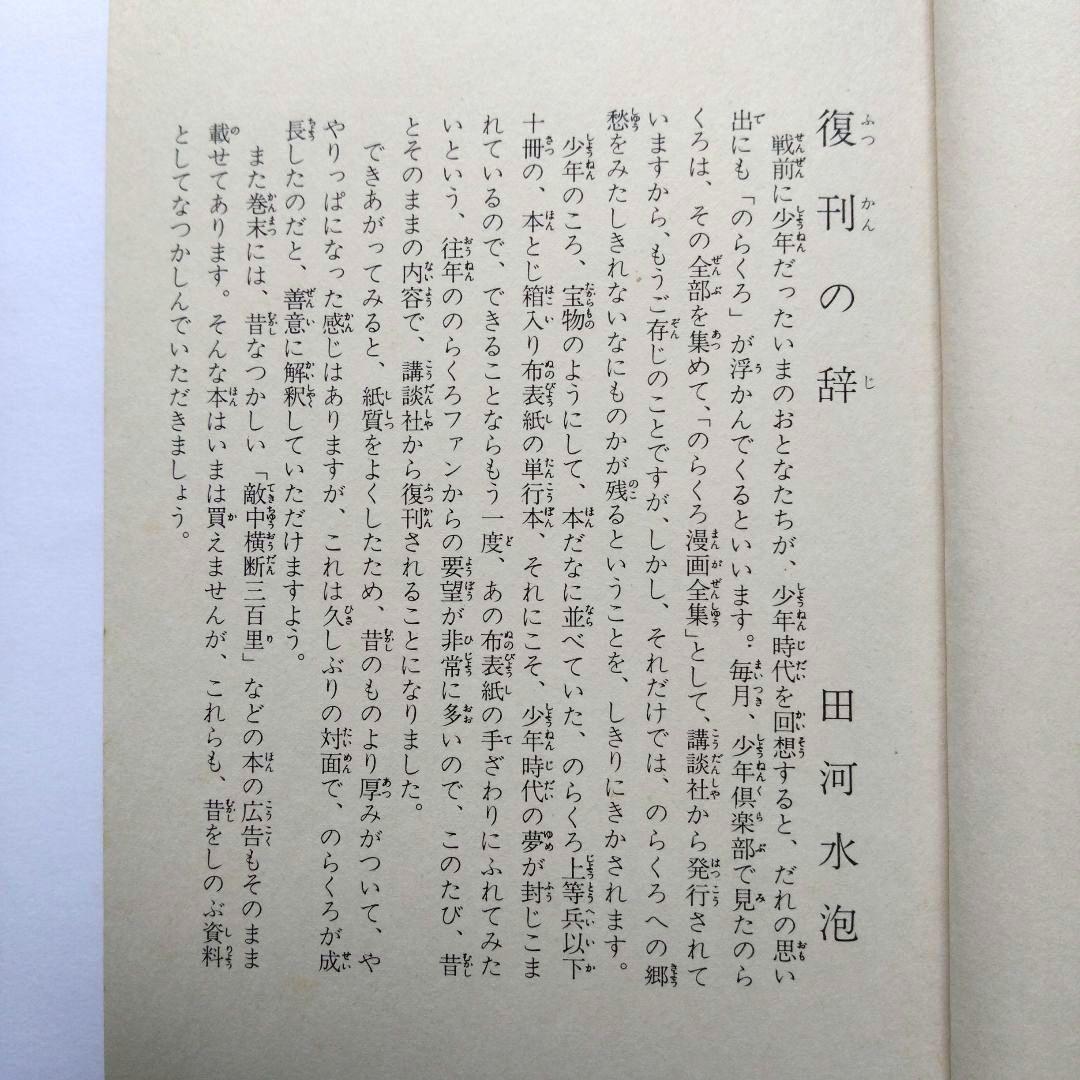 復刊の辞　田河水泡
戦前に少年だったいまのおとなたちが、少年時代を回想すると、だれの思い
出にも「のらくろ」が浮かんでくるといいます。毎月、少年倶楽部で見たのら
くろは、その全部を集めて、「のらくろ漫画全集」として、講談社から発行されて
いますから、もうご存じのことですが、しかし、それだけでは、のらくろへの郷
愁をみたしきれないなにものかが残るということを、しきりにきかされます。
少年のころ、宝物のようにして、本だなに並べていた、のらくろ上等兵以下
十冊の、本とじ箱入り布表紙の単行本、それにこそ、少年時代の夢が封じこま
れているので、できることならもう一度、あの布表紙の手ざわりにふれてみた
いという、往年ののらくろファンからの要望が非常に多いので、このたび、昔
とそのままの内容で、講談社から復刊されることになりました。
できあがってみると、紙質をよくしたため、昔のものより厚みがついて、や
やりっぱになった感じはありますが、これは久しぶりの対面で、のらくろが成
長したのだと、善意に解釈していただけますよう。
また巻末には、昔なつかしい「敵中横断三百里」などの本の広告もそのまま
載せてあります。そんな本はいまは買えませんが、これらも、昔をしのぶ資料
としてなつかしんでいただきましょう。